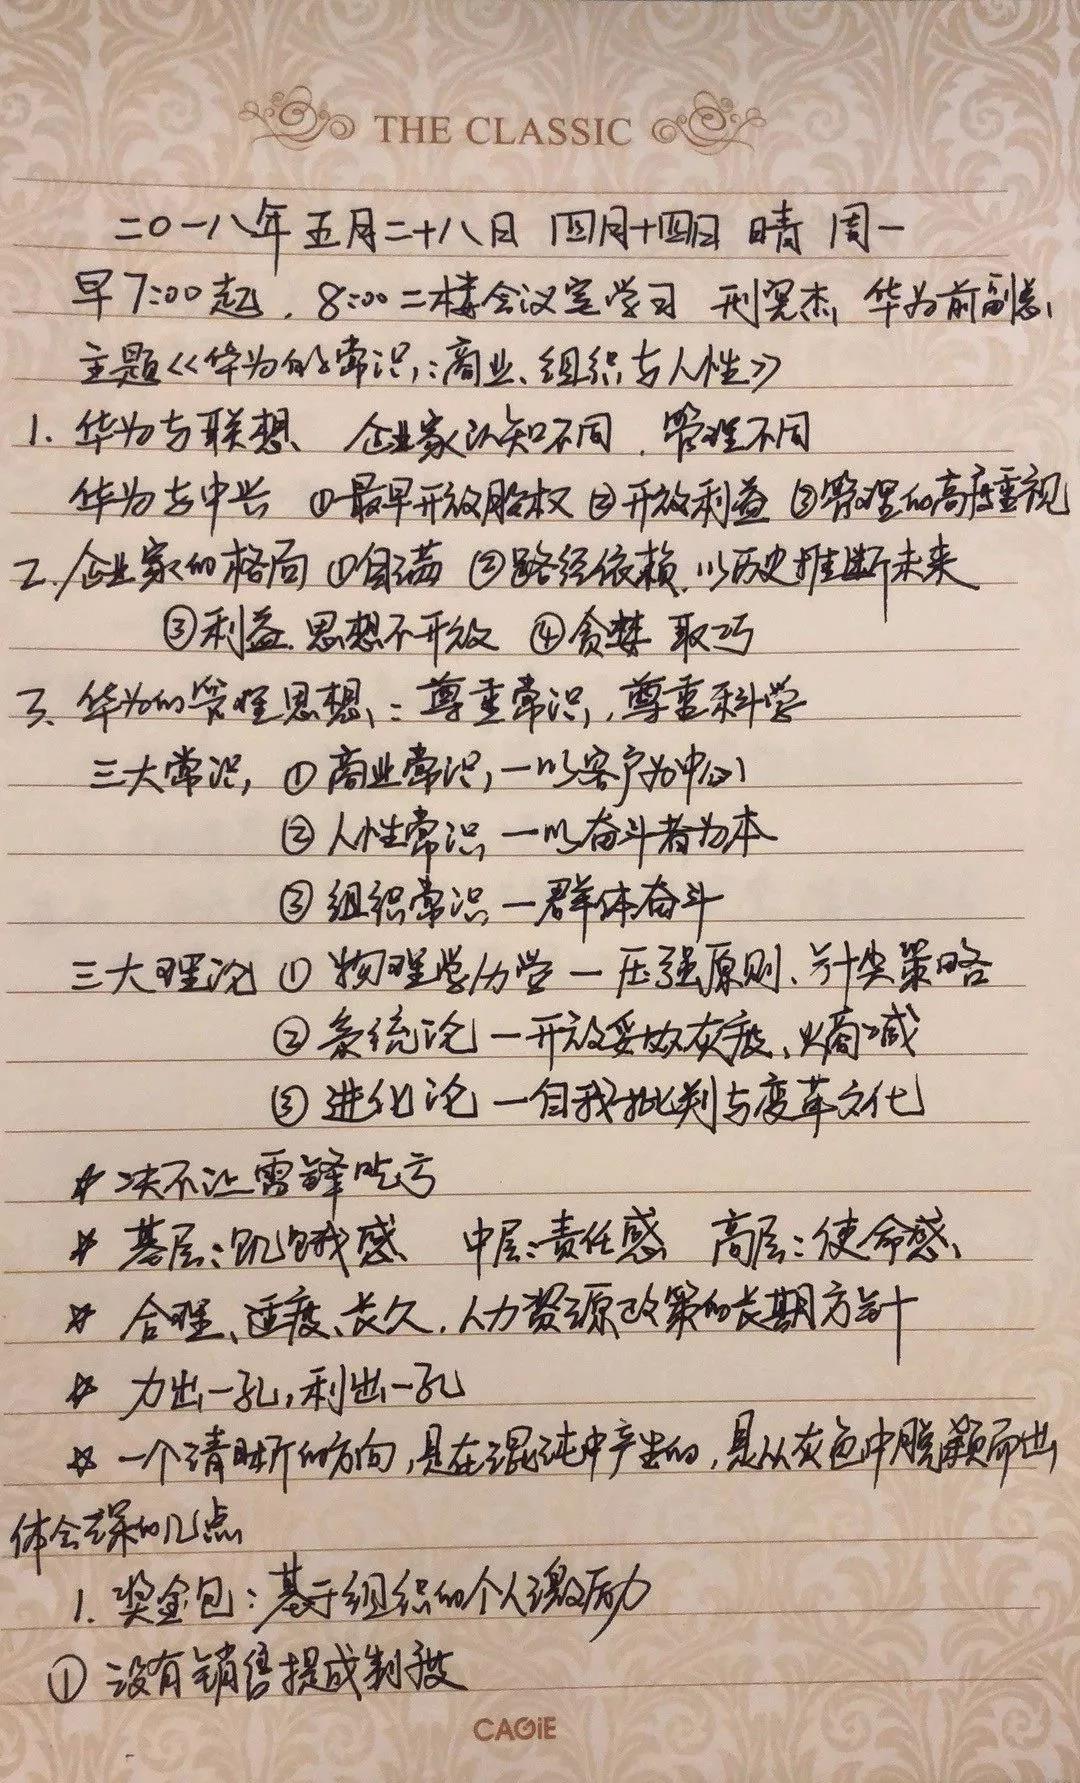 THE CLASSIC
二〇一八年五月二十八日 四月十四日 晴 周一
早7:00起，8:00二楼会议室学习 邢宪杰，华为前副总，
主题《华为的常识：商业、组织与人性》
1. 华为与联想、企业家认知不同，管理不同
华为与中兴 ①最早开放股权 ②开放利益 ③管理的高度重视
2. 企业家的格局 ①自满 ②路径依赖，以历史推断未来
③利益、思想不开放 ④贪婪 取巧
3、华为的管理思想：尊重常识，尊重科学
三大常识，①商业常识，—以客户为中心
②人性常识 —以奋斗者为本
③组织常识 —群体奋斗
三大理论 ①物理学力学 — 压强原则、针尖策略
②系统论 —开放妥协灰度、熵减
③进化论 —自我批判与变革文化
☆ 决不让雷锋吃亏
☆ 基层：饥饿感 中层：责任感 高层：使命感、
☆ 合理、适度、长久，人力资源政策的长期方针
☆ 力出一孔，利出一孔
☆ 一个清晰的方向，是在混沌中产生的，是从灰色中脱颖而出
体会深的几点
1. 奖金包：基于组织的个人激励
① 没有销售提成制度
CAGiE